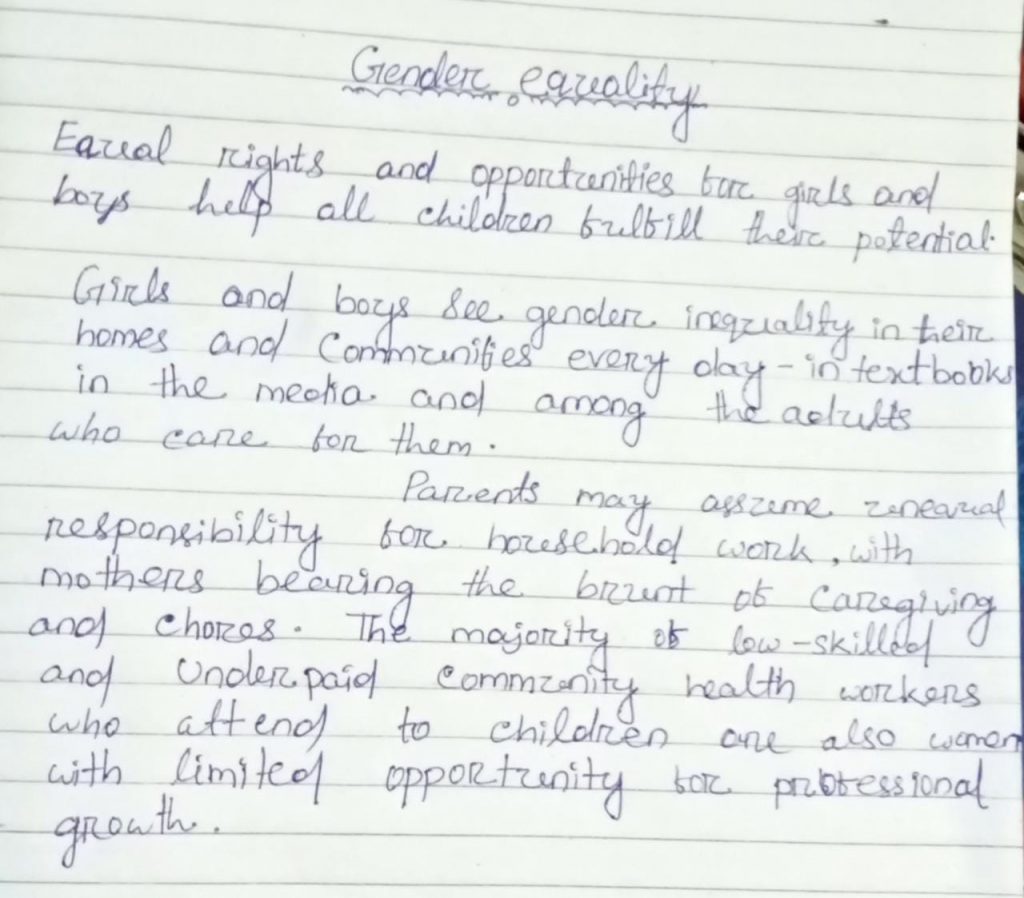 Gender equality
Equal rights and opportunities for girls and
boys help all children fulfill their potential.
Girls and boys see gender inequality in their
homes and Communities every day - in textbooks
in the media and among the adults
who care for them.
Parents may assume unequal
responsibility for household work, with
mothers bearing the brunt of Caregiving
and Chores. The majority of low-skilled
and Underpaid community health workers
who attend to children are also women
with limited opportunity for professional
growth.